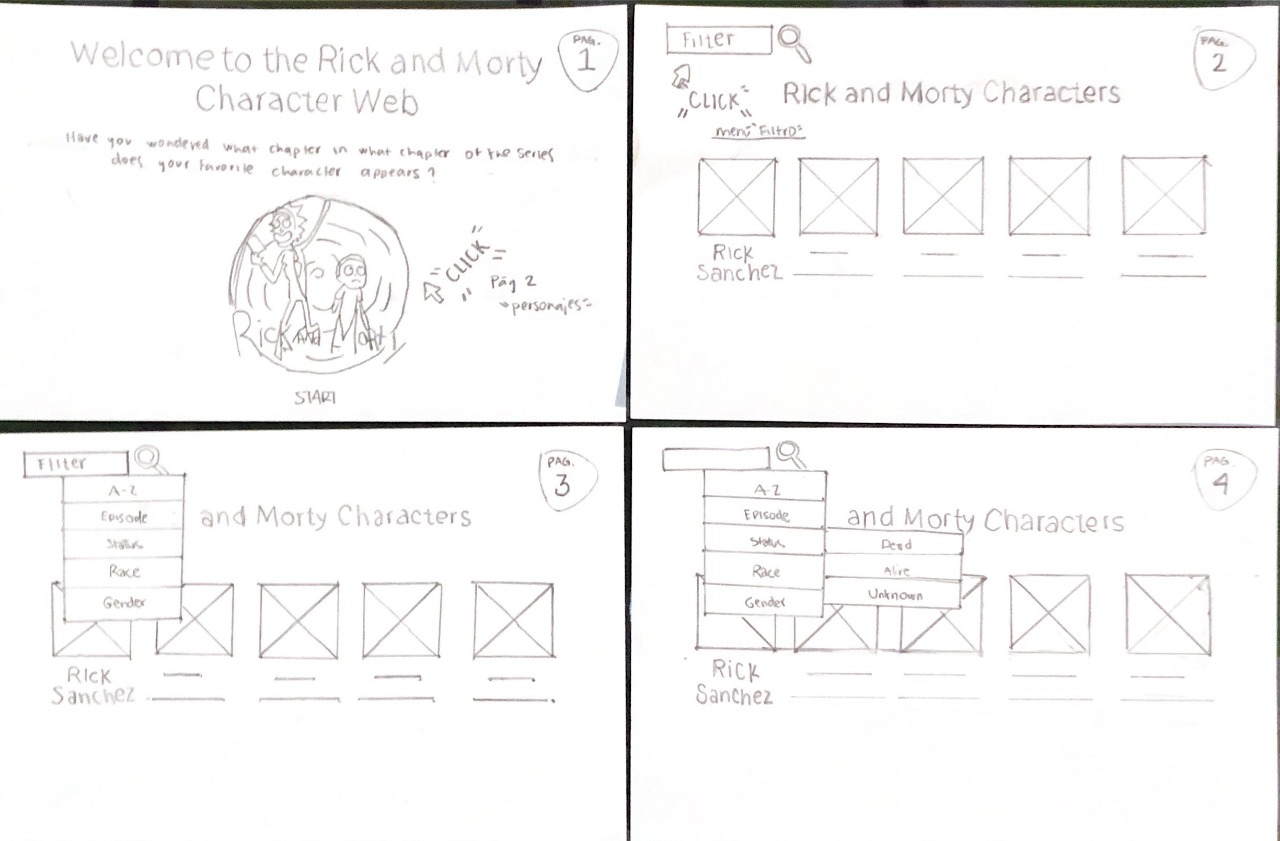 Welcome to the Rick and Morty
Character Web
PAG.
1
Have you wondered what chapter in what chapter of the series
does your favorite character appears?
"CLICK"
Pág 2
"personajes"
Rick AND MORTY
START
Filter
PAG.
2
"CLICK"
Rick and Morty Characters
menú "Filtro"
Rick
Sanchez
Filter
PAG.
3
A-Z
Episode
Status
Race
Gender
and Morty Characters
Rick
Sanchez
PAG.
4
A-Z
Episode
Status
Race
Gender
Dead
Alive
Unknown
and Morty Characters
Rick
Sanchez